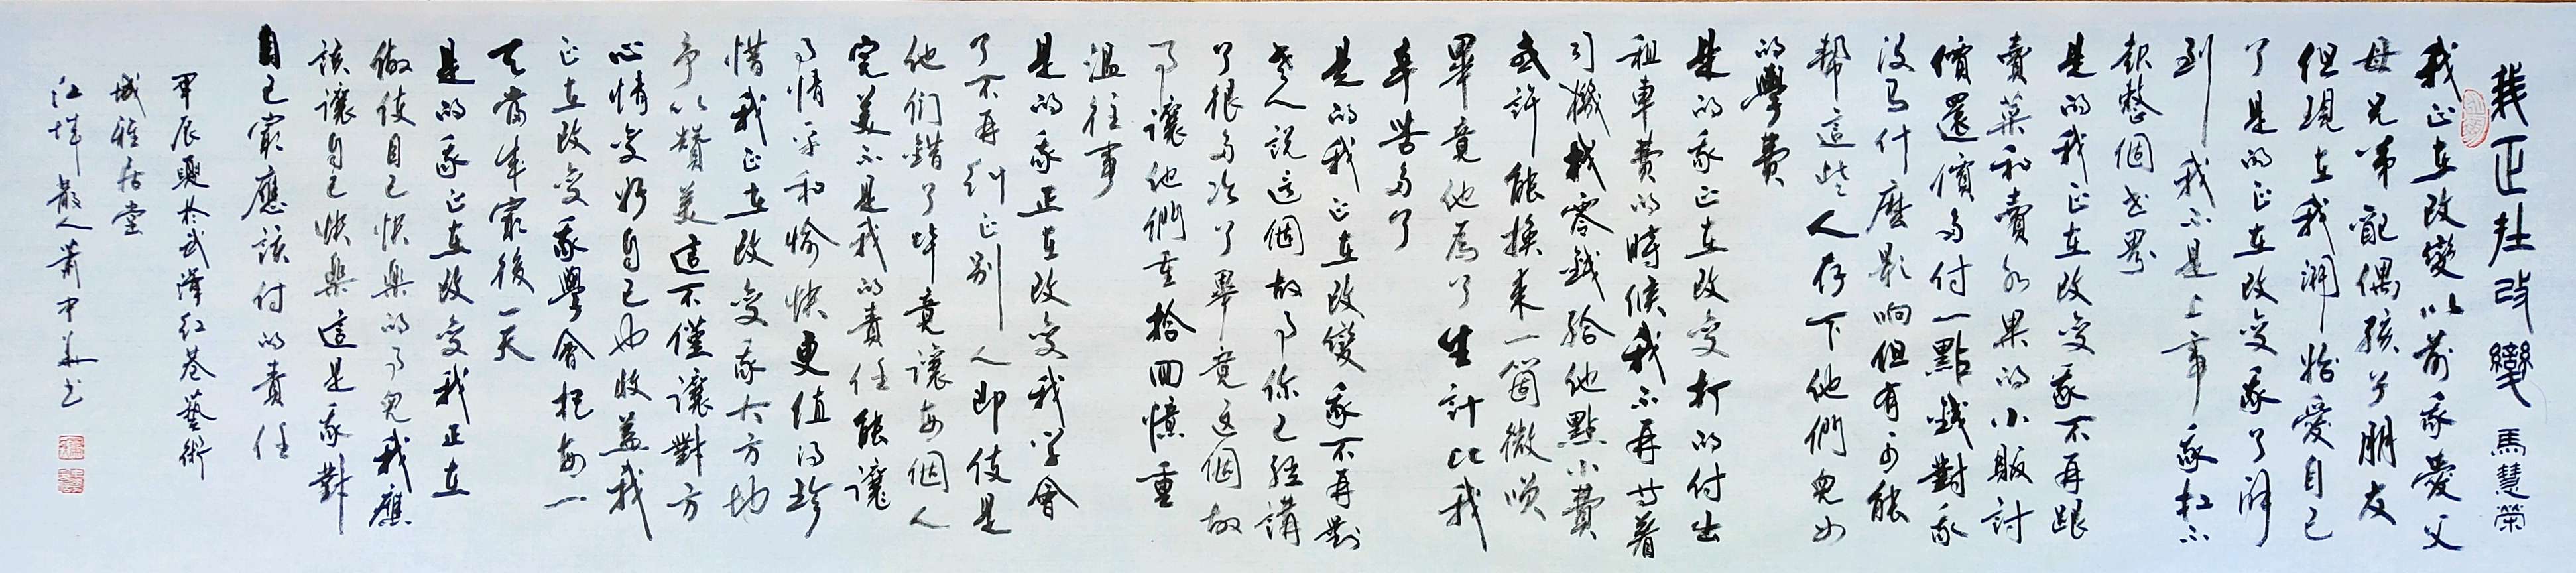 我正在改變 馬慧榮
我正在改變以前我愛父
母兄弟配偶孩子朋友
但現在我開始愛自己
了是的正在改变我了解
到我不是上帝我扛不
起整個世界
是的我正在改变我不再跟
賣菜和賣水果的小販討
價還價多付一點錢對我
没有什麼影响但有可能
帮這些人存下他們兒女
的學費
是的我正在改变打的付出
租車費的時候我不再等着
司機找零錢給他點小費
或許能換来一個微笑
畢竟他為了生計比我
辛苦多了
是的我正在改變我不再對
老人説這個故事你已经講
了很多次了畢竟这個故
事讓他們重拾回憶重
温往事
是的我正在改变我学會
了不再糾正别人即使是
他们錯了畢竟讓每個人
完美不是我的責任能讓
事情平和愉快更值得珍
惜我正在改变我大方地
予以赞美這不僅讓對方
心情变好自己也收益我
正在改变我學會把每一
天當成最後一天
是的我正在改变我正在
做使自己快樂的事兒我應
該讓自己快樂這是我對
自己最應該付的責任
甲辰夏於武漢红巷藝術
城雅居堂
江城散人蕭中華书